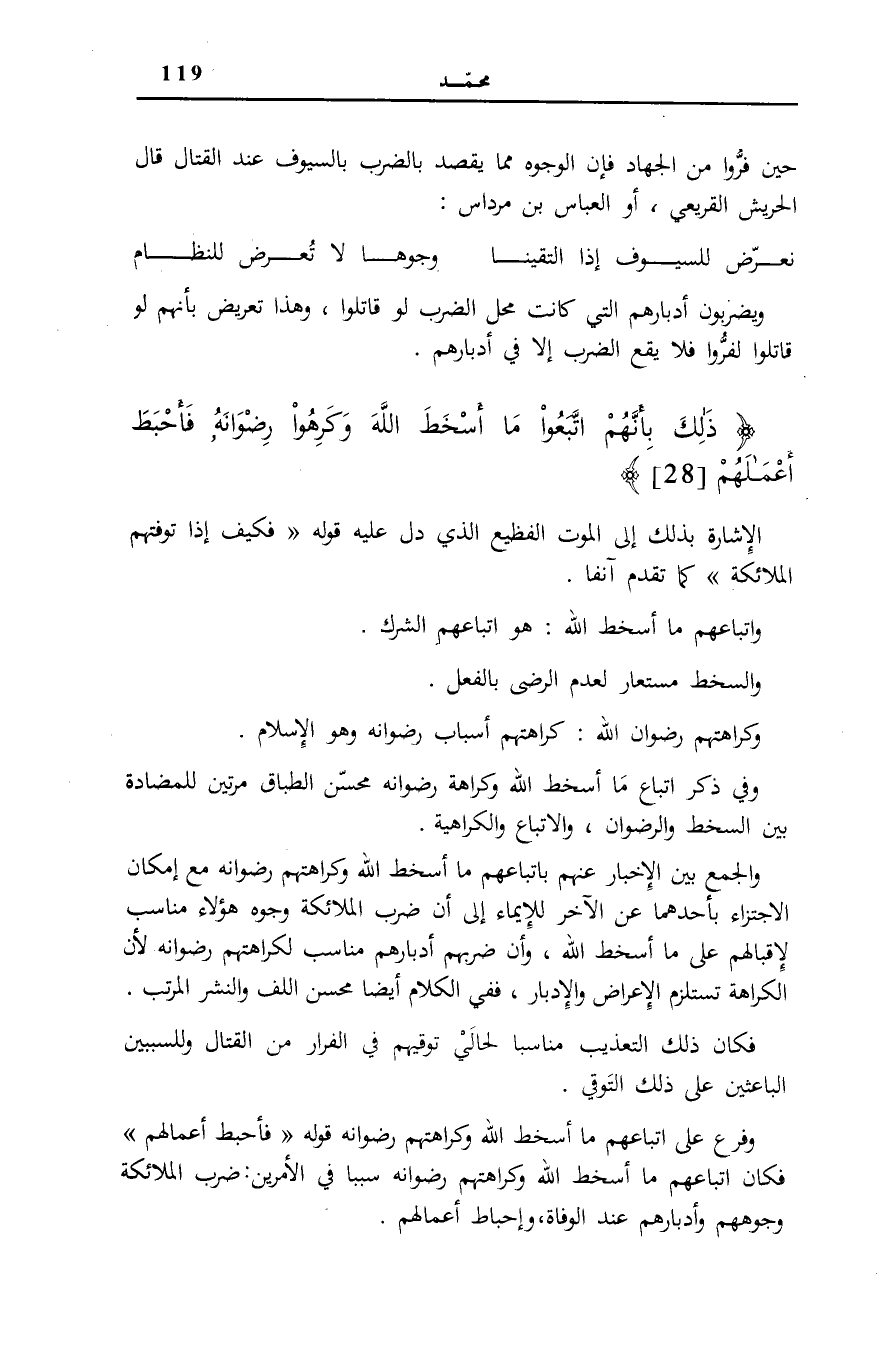 119
محمّـــد
حين فرُّوا من الجهاد فإن الوجوه مما يقصد بالضرب بالسيوف عند القتال قال
الحريش القريعي ، أو العباس بن مرداس :
نعـــرّض للسيـــــوف إذا التقينـــــا وجوهـــــا لا تُعـــــرض للنظـــــام
ويضربون أدبارهم التي كانت محل الضرب لو قاتلوا ، وهذا تعريض بأنهم لو
قاتلوا لفرُّوا فلا يقع الضرب إلا في أدبارهم .
﴿ ذَٰلِكَ بِأَنَّهُمْ اتَّبَعُواْ مَا أَسْخَطَ اللَّهَ وَكَرِهُواْ رِضْوَانَهُۥ فَأَحْبَطَ
أَعْمَـٰلَهُمْ [28] ﴾
الإشارة بذلك إلى الموت الفظيع الذي دل عليه قوله « فكيف إذا توفتهم
الملائكة » كما تقدم آنفا .
واتباعهم ما أسخط الله : هو اتباعهم الشرك .
والسخط مستعار لعدم الرضى بالفعل .
وكراهتهم رضوان الله : كراهتهم أسباب رضوانه وهو الإسلام .
وفي ذكر اتباع مَا أسخط الله وكراهة رضوانه محسّن الطباق مرتين للمضادة
بين السخط والرضوان ، والاتباع والكراهية .
والجمع بين الإخبار عنهم باتباعهم ما أسخط الله وكراهتهم رضوانه مع إمكان
الاجتزاء بأحدهما عن الآخر للإيماء إلى أن ضرب الملائكة وجوه هؤلاء مناسب
لإقبالهم على ما أسخط الله ، وأن ضربهم أدبارهم مناسب لكراهتهم رضوانه لأن
الكراهة تستلزم الإعراض والإدبار ، ففي الكلام أيضا محسن اللف والنشر المرتب .
فكان ذلك التعذيب مناسبا لحالَيْ توقيهم في الفرار من القتال وللسببين
الباعثين على ذلك التَوقي .
وفرع على اتباعهم ما أسخط الله وكراهتهم رضوانه قوله « فأحبط أعمالهم »
فكان اتباعهم ما أسخط الله وكراهتهم رضوانه سببا في الأمرين: ضرب الملائكة
وجوههم وأدبارهم عند الوفاة، وإحباط أعمالهم .